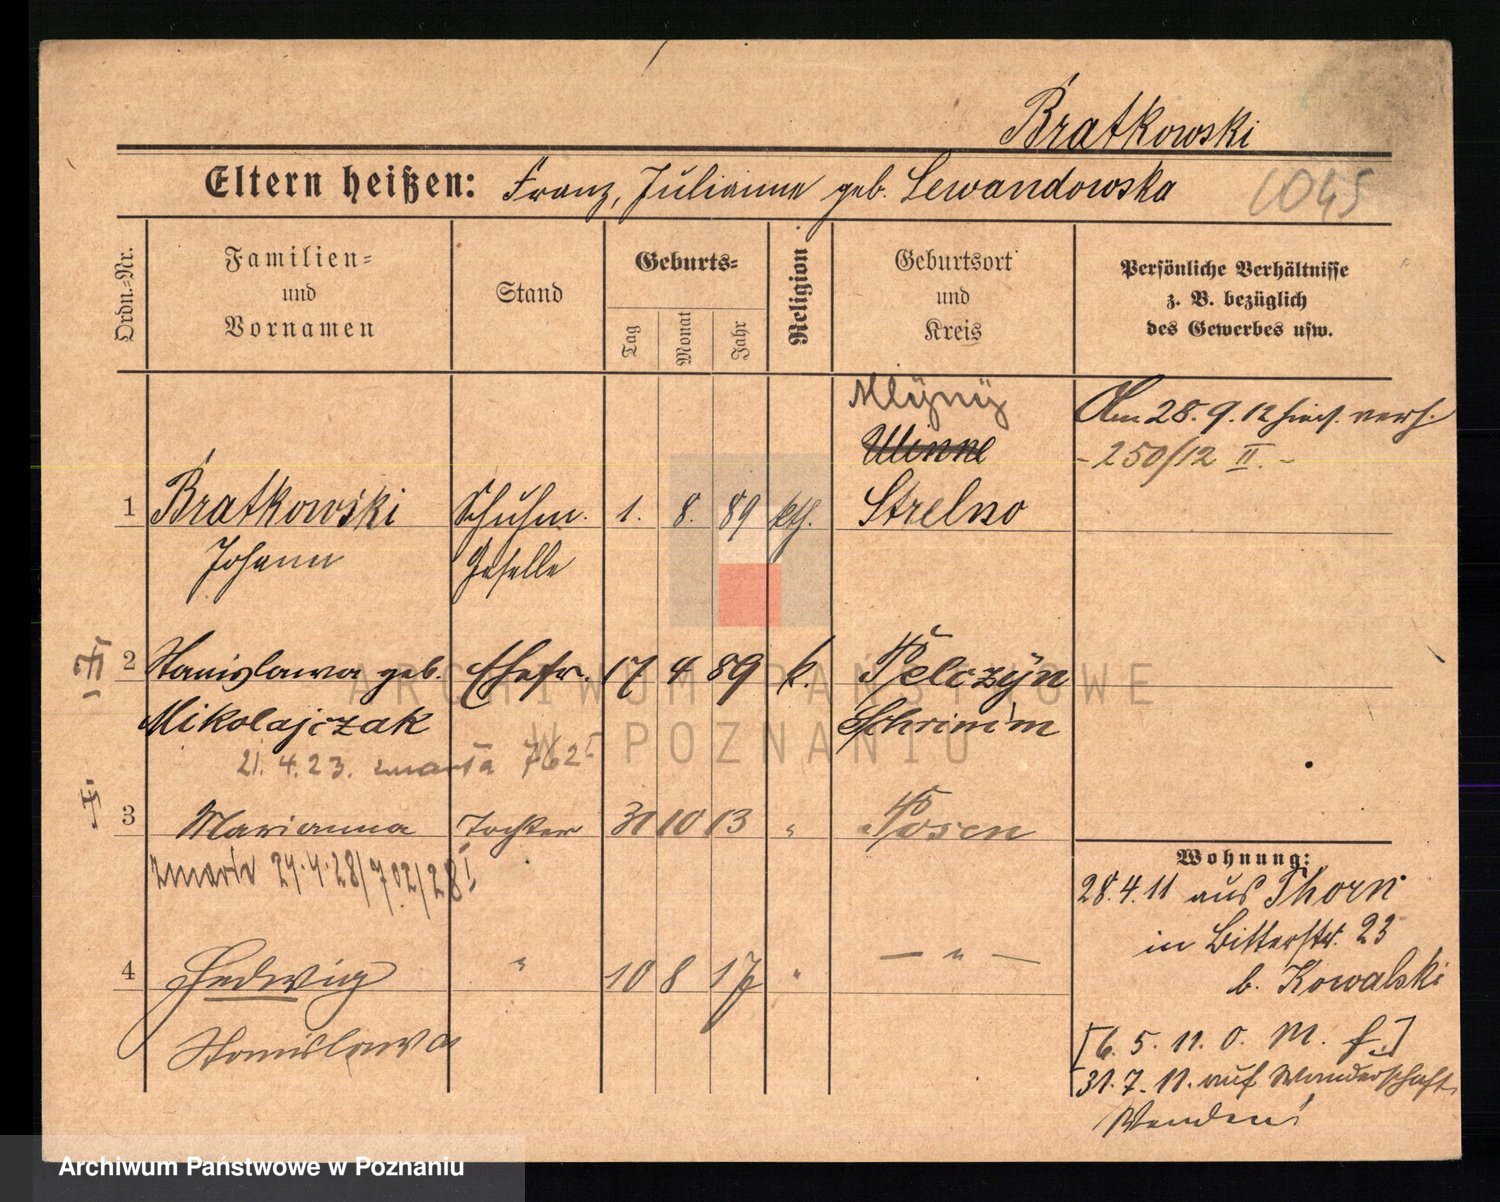 Bratkowski
Eltern heißen: Franz, Julianne geb. Lewandowska
1045
Ordn.=Nr.
Familien=
und
Vornamen
Stand
Geburts=
Tag
Monat
Jahr
Religion
Geburtsort
und
Kreis
Persönliche Verhältnisse
z. B. bezüglich
des Gewerbes usw.
Mlÿnÿ
Am 28. 9. 12 hies. verh.
- 250/12 II. -
1 Bratkowski Schuhm. 1. 8. 89 kth. Strelno
Johann Geselle
2 Stanislawa geb. Ehefr. 17 4 89 k. Pelczÿn
Mikolajczak Schrimm
21. 4. 23. zmarła 762 I
3 Marianna Tochter 31 10 13 " Posen
zmarła 24.4.28/702/28 I
Wohnung:
28.4.11 aus Thorn
in Bitterstr. 23
b. Kowalski
4 Hedwig " 10 8 17 " — " —
Stanislawa
[6. 5. 11. O. M. f.]
31. 7. 11. auf Wanderschaft
ARCHIWUM PAŃSTWOWE
W POZNANIU
Archiwum Państwowe w Poznaniu